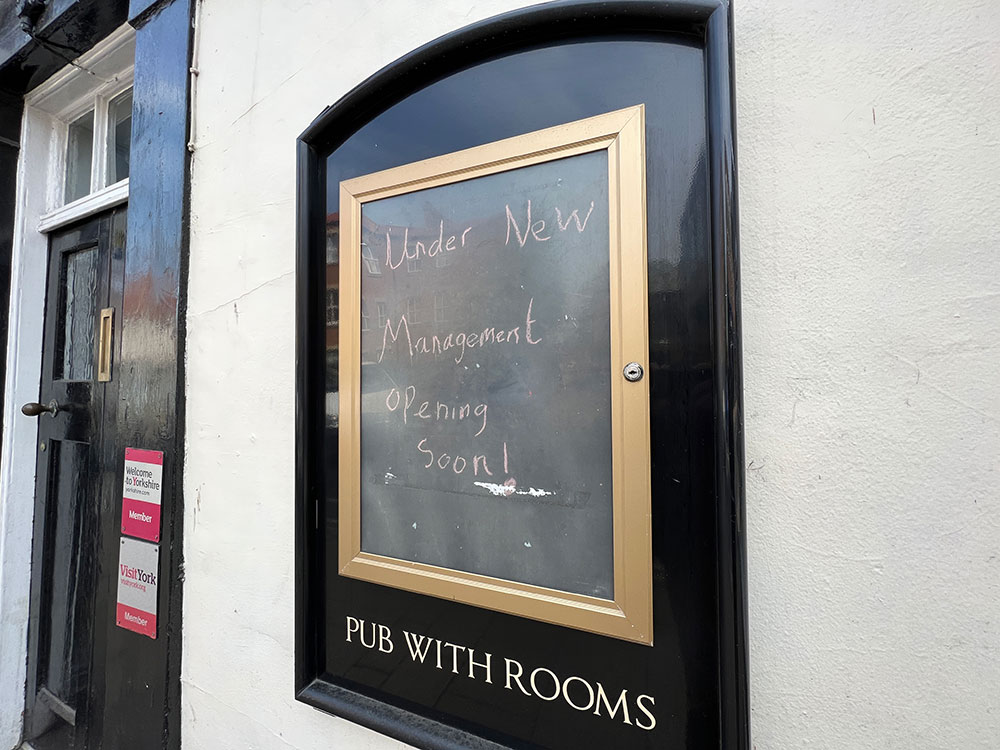 Under New
Management
opening
Soon!
PUB WITH ROOMS
Welcome
to Yorkshire
yorkshire.com
Member
VisitYork
visityork.org
Member